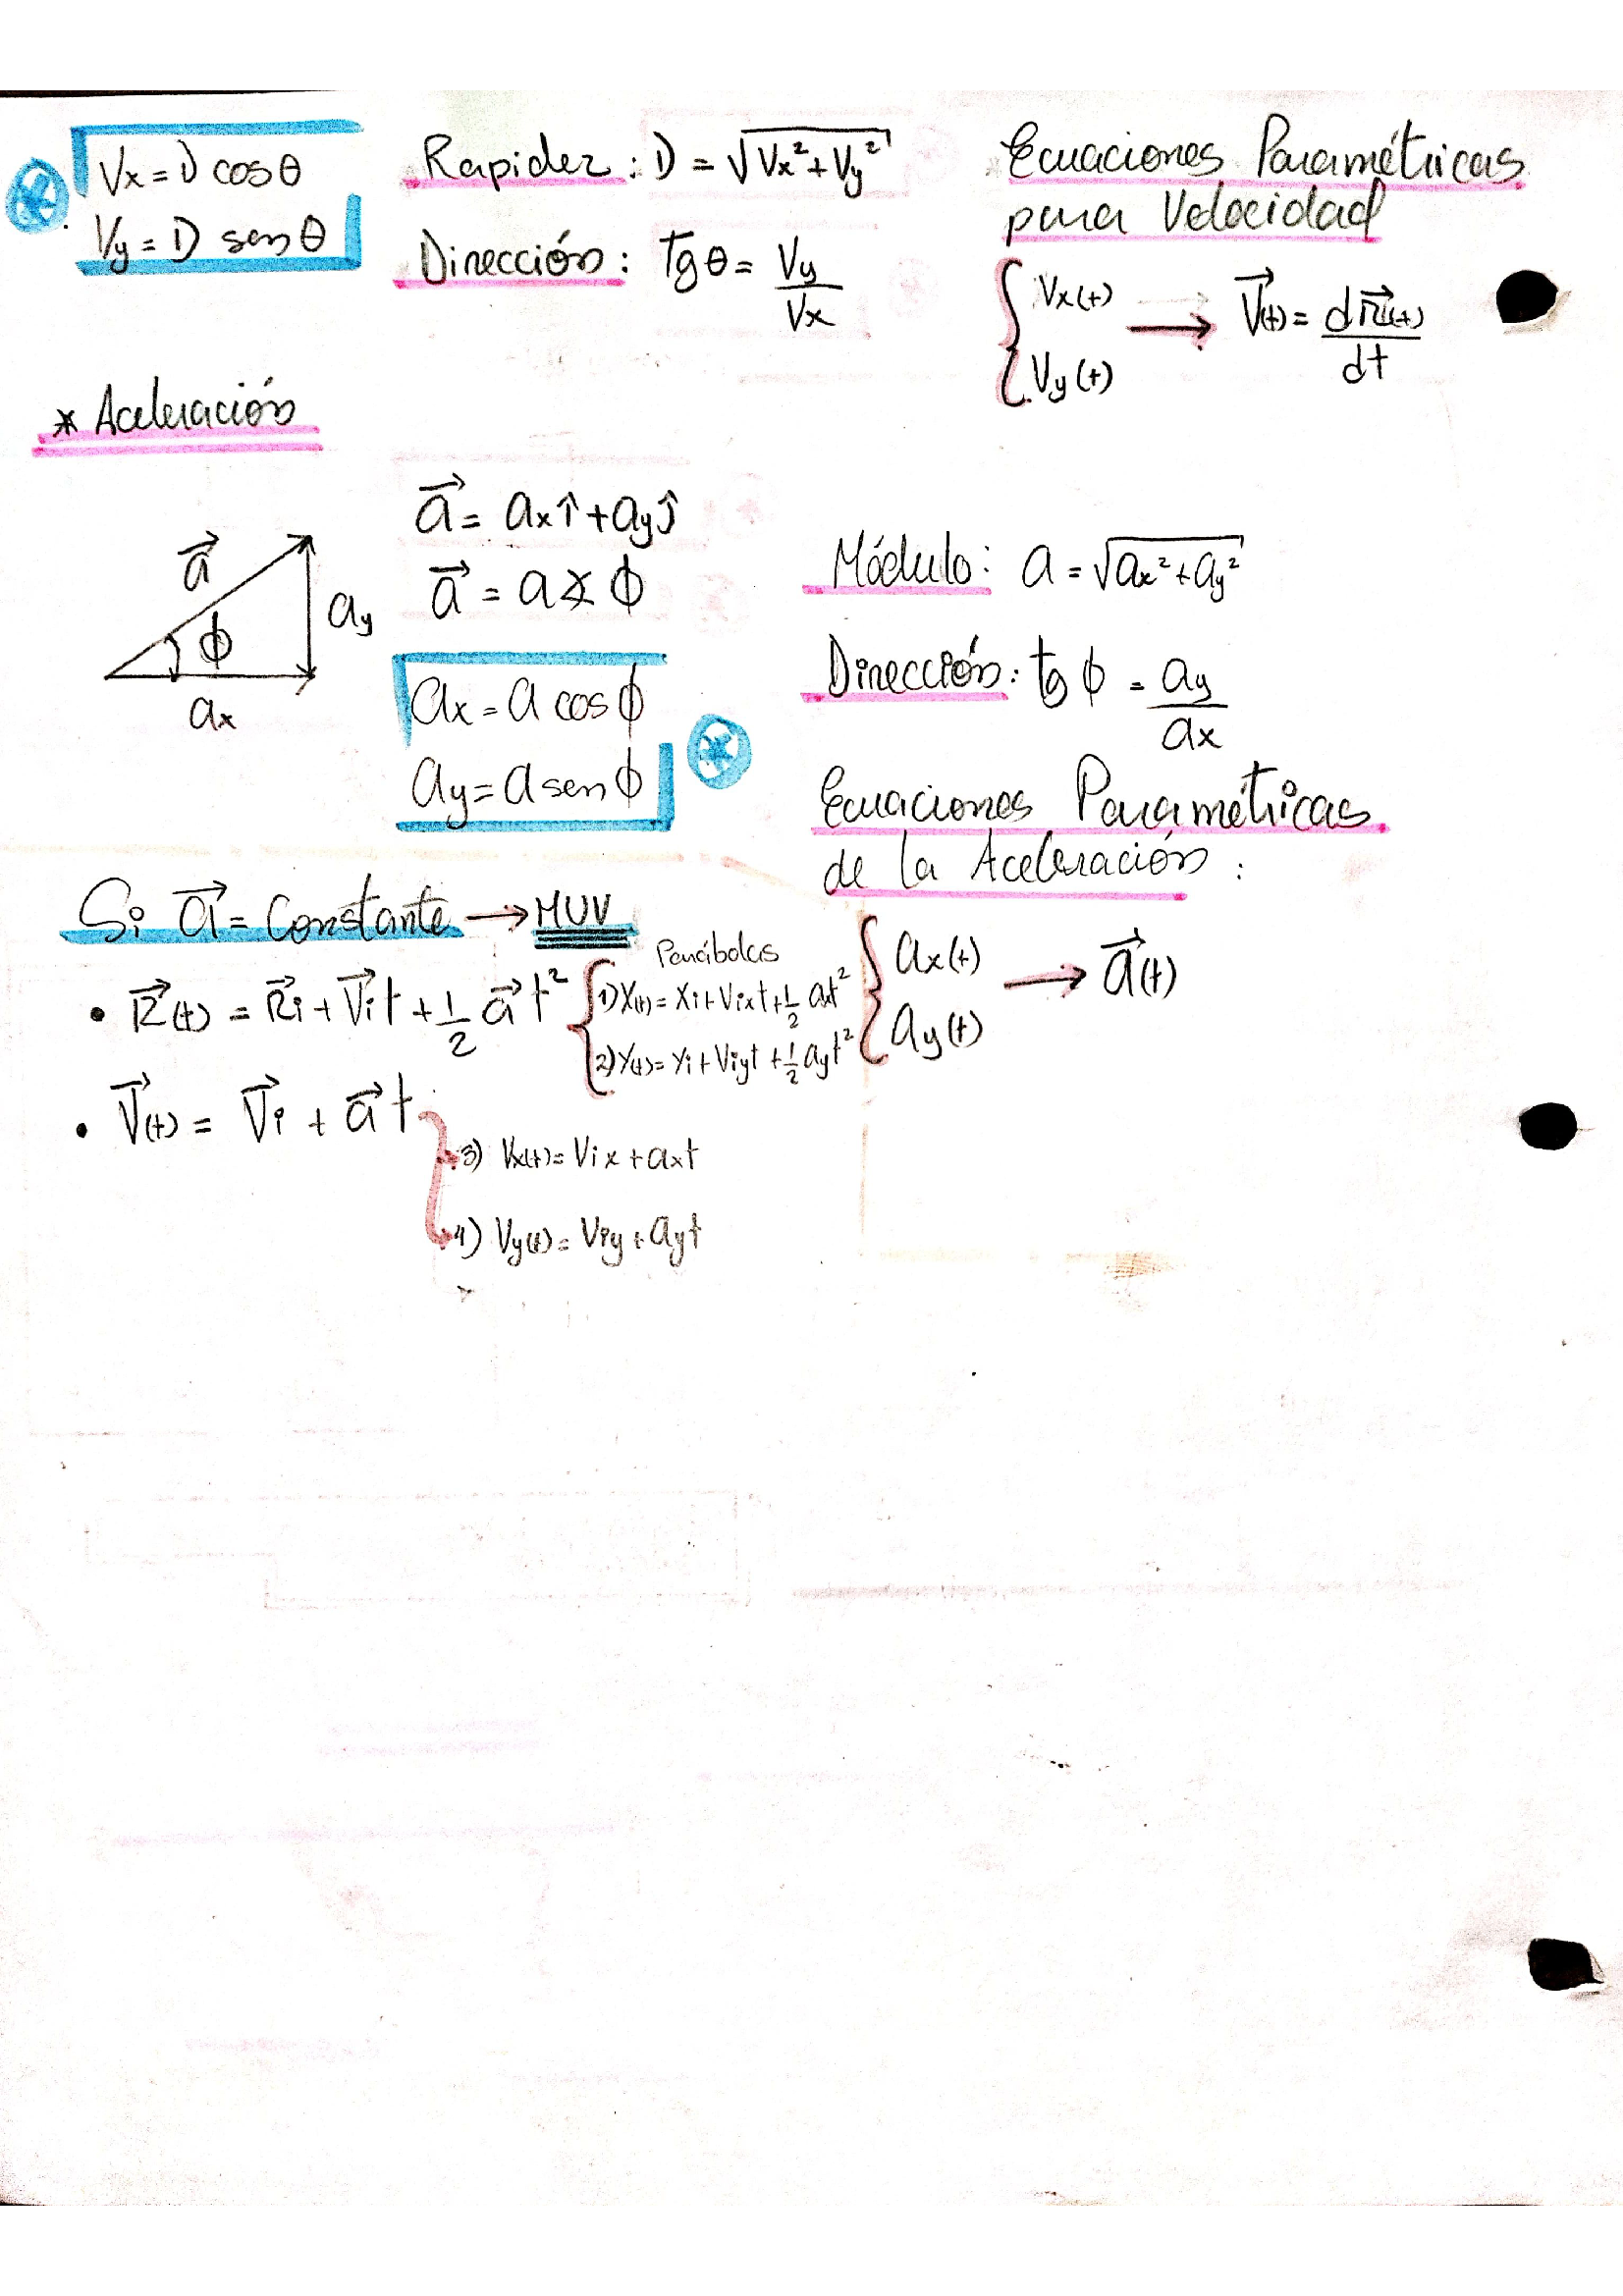 Vx = v cos θ
Vy = v sen θ
Rapidez: v = √(Vx² + Vy²)
Dirección: tg θ = Vy / Vx
Ecuaciones Paramétricas
para Velocidad
{ Vx(t)
Vy(t) → V⃗(t) = dR⃗(t) / dt
* Aceleración
a⃗
ϕ
ay
ax
a⃗ = ax î + ay ĵ
a⃗ = a ∡ ϕ
ax = a cos ϕ
ay = a sen ϕ
Módulo: a = √(ax² + ay²)
Dirección: tg ϕ = ay / ax
Ecuaciones Paramétricas
de la Aceleración:
{ ax(t)
ay(t) → a⃗(t)
Si a⃗ = Constante → MUV
• R⃗(t) = R⃗i + V⃗i t + 1/2 a⃗ t²
Parábolas
1) X(t) = Xi + Vixt + 1/2 axt²
2) Y(t) = Yi + Viyt + 1/2 ayt²
• V⃗(t) = V⃗i + a⃗ t
3) Vx(t) = Vix + axt
4) Vy(t) = Viy + ayt